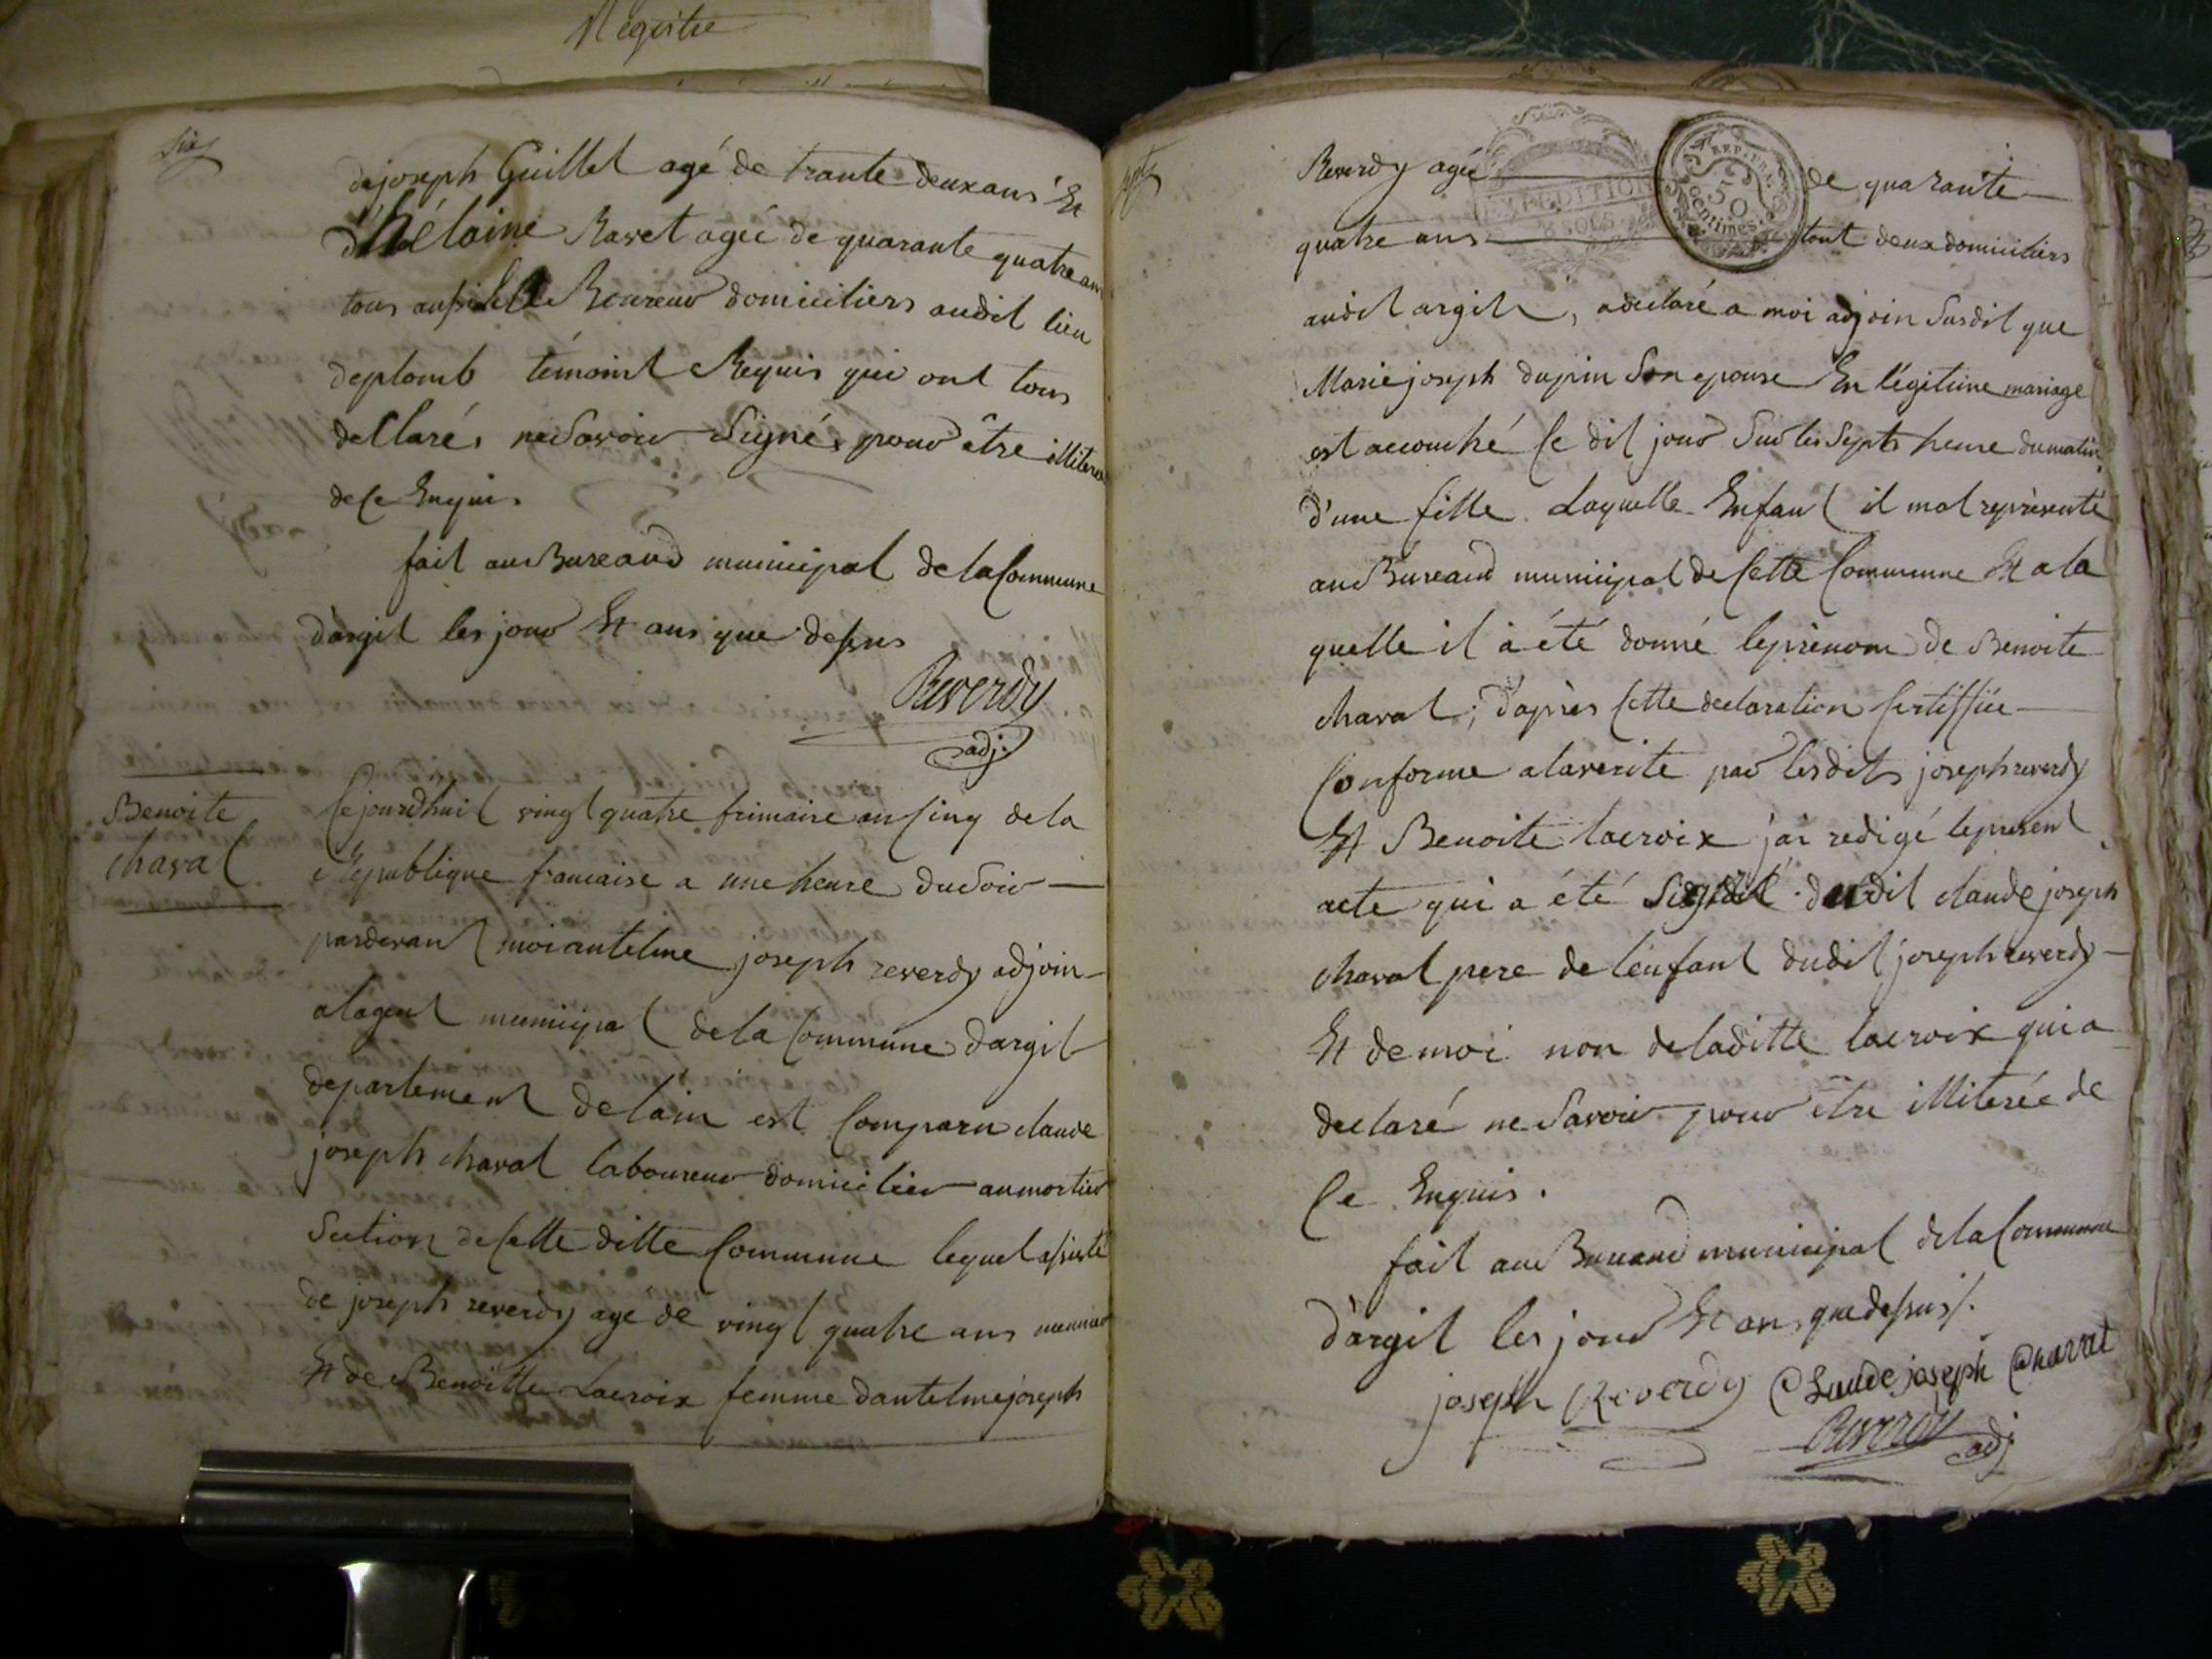 Registre
Six
de joseph Guillet agé de trante deux ans Et
d'hélaine Ravet agée de quarante quatre ans
tous aussi laboureurs domiciliers audit lieu
deplomb témoint Requis qui ont tous
decllarés ne Savoir Signé, pour être illiteré
de ce Enquis.
fait au Bureaud municipal de la Commune
d'argit les jour Et ans que dessus
Reverdy
adj.
Benoite
chaval
Cejourdhuit vingt quatre frimaire an Cinq de la
République francaise a une heure du Soir
pardevant moi antelme joseph reverdy adjoin
a lagent municipal de la Commune dargit
departement de lain est Comparu claude
joseph chaval laboureur domicilier au mortier
Section de Cette ditte Commune lequel assisté
de joseph reverdy age de vingt quatre ans meunier
Et de Benoitte Lacroix femme dantelme joseph
sept
Reverdy agée de quarante
quatre ans tout deux domiciliers
EXPEDITION
8 SOLS
REP. FRA.
50
centimes
audit argit, a declaré a moi adjoin Susdit que
Marie joseph dupin Son epouse En légitime mariage
est accouché Ce dit jour Sur les Septs heure du matin
d'une fille. Laquelle Enfant il mat représenté
au Bureaud municipal de Cette Commune Et a la
quelle il à été donné le prénom de Benoite
chaval; d'après Cette declaration Certiffiée
Conforme a la verité par lesdits joseph reverdy
Et Benoite lacroix j'ai redigé le present
acte qui a été Signé dudit claude joseph
chaval pere de l'enfant dudit joseph reverdy
Et de moi non de laditte lacroix qui a
declaré ne Savoir pour être illiterée de
Ce Enquis.
fait au Bureaud municipal de la Commune
d'argit les jour Et ans que dessus.
joseph Reverdy Claude joseph Charvat
Reverdy
adj